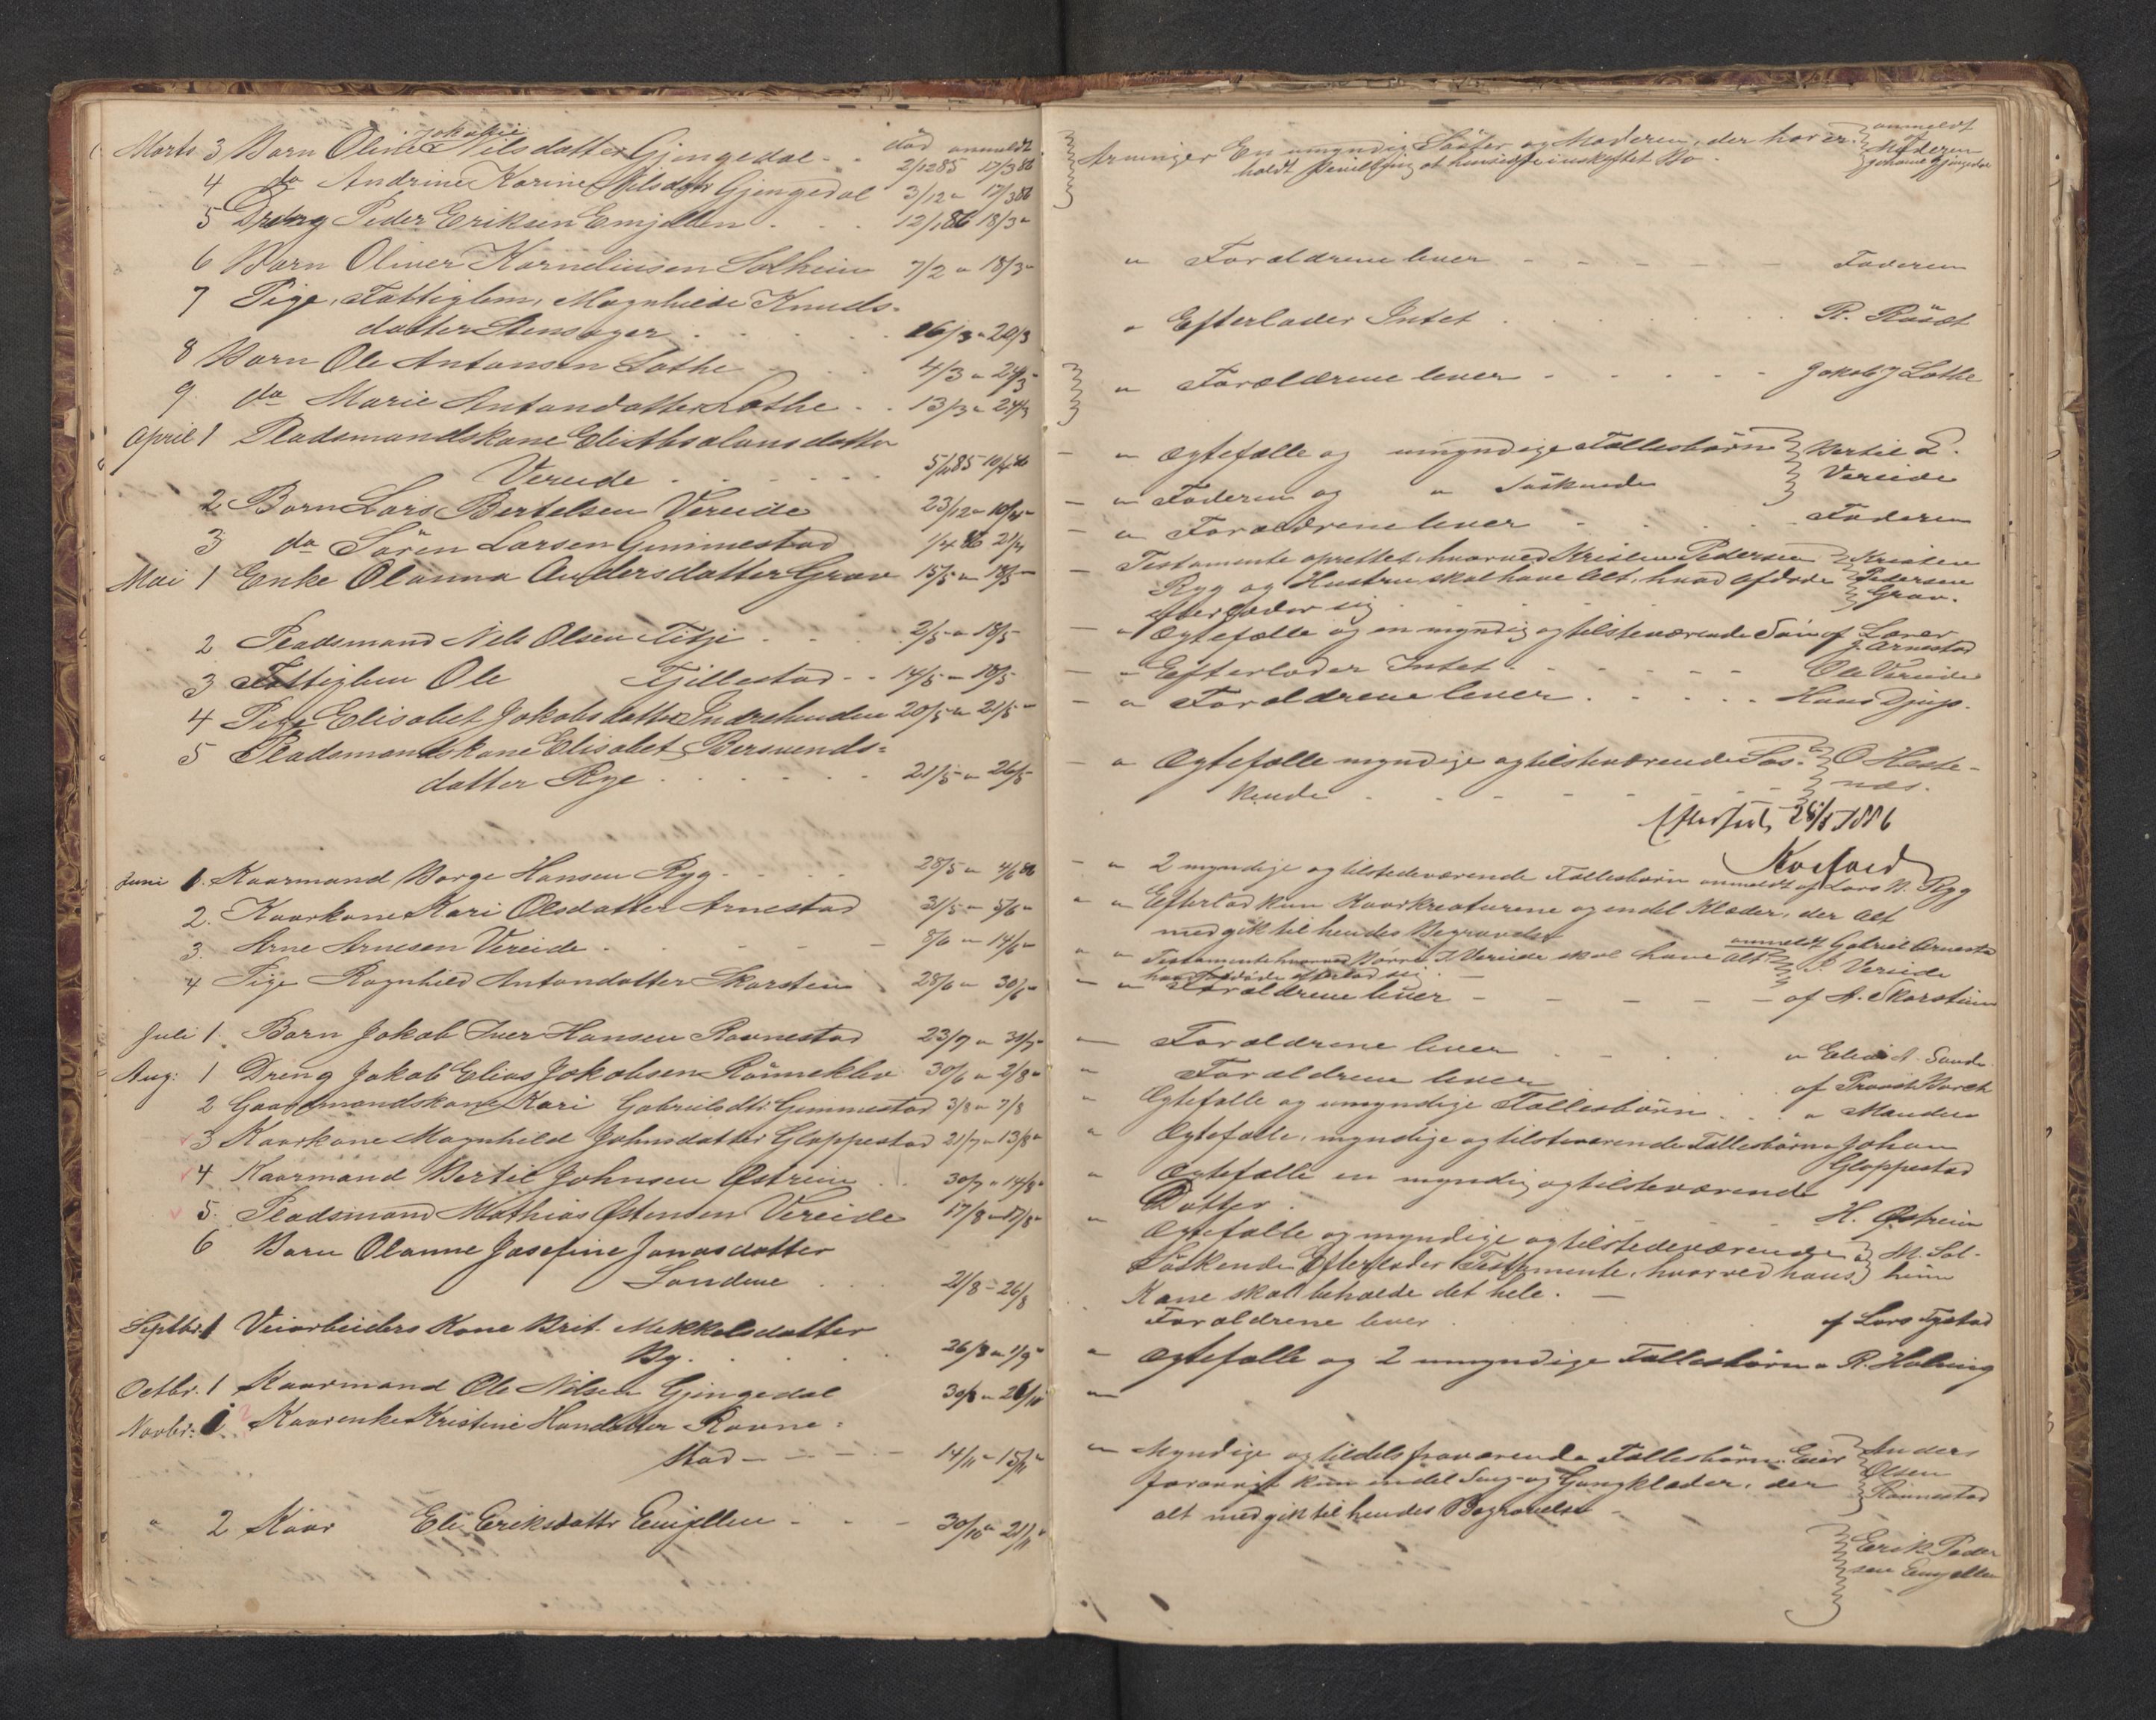 død anmeldt.
Jokobie
Marts 3 Barn Oline Nilsdatter Gjengedal - - 2/12 85 17/3 86
4 do Andrine Karine Nilsdtr Gjengedal 3/12 " 17/3 86
5 Dreng Peder Eriksen Emjellen . . . 12/1 86 18/3 "
6 Barn Oliver Korneliusen Solheim 7/2 " 18/3 "
7 Pige, Fattiglem, Magnhilde Knuds-
datter Stensager . . . . . 16/3 " 20/3
8 Barn Ole Antonsen Lothe . . . 4/3 " 24/3 "
9 do Marie Antondatter Lothe . . 13/3 " 24/3
April 1 Pladsmandskone Eli Absalonsdatter
Vereide . . . . . . 5/ 85 10/4 86
2 Barn Lars Bertelsen Vereide 23/12 " 10/4 "
3 do Sören Larsen Gimmestad 1/4 86 21/4
Mai 1 Enke Olanna Andersdatter Grav 15/5 " 18/5 "
2 Pladsmand Nils Olsen Fitje . . . 2/5 " 18/5
3 Fattiglem Ole Fjellestad - - 14/5 " 18/5
4 Pige Elisabet Jakobsdatter Indrehuden 20/5 " 21/5 "
5 Pladsmandskone Elisabet Bersvends-
datter Ryg . . . . . . 21/5 " 26/5
Juni 1. Kaarmand Borge Hansen Ryg - . . . 28/5 " 4/6 86
2. Kaarkone Kari Olsdatter Arnestad 31/5 " 5/6 "
3. Arne Arnesen Vereide . - - - - 8/6 " 14/6 "
4 Pige Ragnhild Antondatter Skarstein . 28/6 " 30/6 "
Juli 1. Barn Jakob Iver Hansen Ravnestad 23/7 " 30/7 "
Aug: 1 Dreng Jakob Elias Jakobsen Rönneklev 30/6 " 2/8 "
2 Gaardmandskone Kari Gabrielsdtr Gimmestad 3/8 " 7/8
3 Kaarkone Magnhild Johnsdatter Gloppestad 21/7 " 13/8 "
4 Kaarmand Bertil Johnsen Østrein . . 30/7 " 14/8 "
5. Pladsmand Mathias Østensen Vereide 17/8 " 17/8 "
6 Barn Olanne Josefine Jonasdatter
Sandene . . . 21/8 - 26/8
Septbr. 1 Veiarbeiders Kone Brit. Mekkelsdatter
By. . . . . 26/8 " 1/9 "
Octbr. 1 Kaarmand Ole Nilsen Gjengedal 30/8 " 26/10
Novbr: 1 Kaarenke Kristine Hansdatter Ravne-
stad - - - - - 14/11 " 15/11 "
" 2 Kaar Eli Eriksdattr Emjellen - - - 30/10 " 21/11 "
Arvinger En umyndig Söster og Moderen, der har er-
holdt Bevilling at hensidde i uskiftet Bo.
anmeldt
af
Moderen
Johanne Gjengedal
" Forældrene lever - - - - - Faderen
" Efterlader Intet . . . . . . R. Röset
" Forældrene lever - - - - - Jakob J Lothe
" Ægtefælle og umyndige Fællesbörn Bertil L.
" Faderen og " Söskende Vereide
" Forældrene lever - - - - Faderen
Testamente oprettet, hvorved Kristen Pedersen Kristen
Ryg og Hustru skal have Alt, hvad Afdøde Pedersen
efterlader sig . . . Grav.
" Ægtefælle og en myndig og tilsteværende Sön af Lærer
J. Arnestad
" Efterlader Intet - - - - - Ole Vereide
" Forældrene lever . . . . . Hans Djup.
" Ægtefælle myndige og tilsteværende Sös- O Heste-
kende - - - - - - næs.
Efterseet 28/5 1886
Koefoed
" 2 myndige og tilstedeværende Fællesbörn anmeldt af Lars B. Ryg
" Efterlod kun Kaarkreaturene og endel Klæder, der Alt
medgik til hendes Begravelse
anmeldt Gabriel Arnestad
" Testamente hvorved Börre J. Vereide skal have Alt P. Vereide
hvad Afdøde efterlod sig.
" Forældrene lever - - - - - af A. Skarstein
Forældrene lever . . . . " Elias A. Sande
" Forældrene lever . . . . af Provst Barth
" Ægtefælle og umyndige Fællesbörn . . . " Manden
" Ægtefælle, myndige og tilsteværende Fællesbörn " Johan
Gloppestad
" Ægtefælle en myndig og tilsteværende
Datter . - - H. Østrein
" Ægtefælle og myndige og tilstedeværende M. Sol-
Söskende Efterlader Testamente, hvorved hans heim
Kone skal beholde det hele. -
Forældrene lever . . . af Lars Tystad
" Ægtefælle og 2 umyndige Fællesbörn " R. Holming
"
" Myndige og tildels fraværende Fællesbörn. Eier Anders
forövrigt kun endel Seng- og Gangklæder, der Olsen
alt medgik til hendes Begravelse - Ravnestad
Erik Peder
sen Emjellen